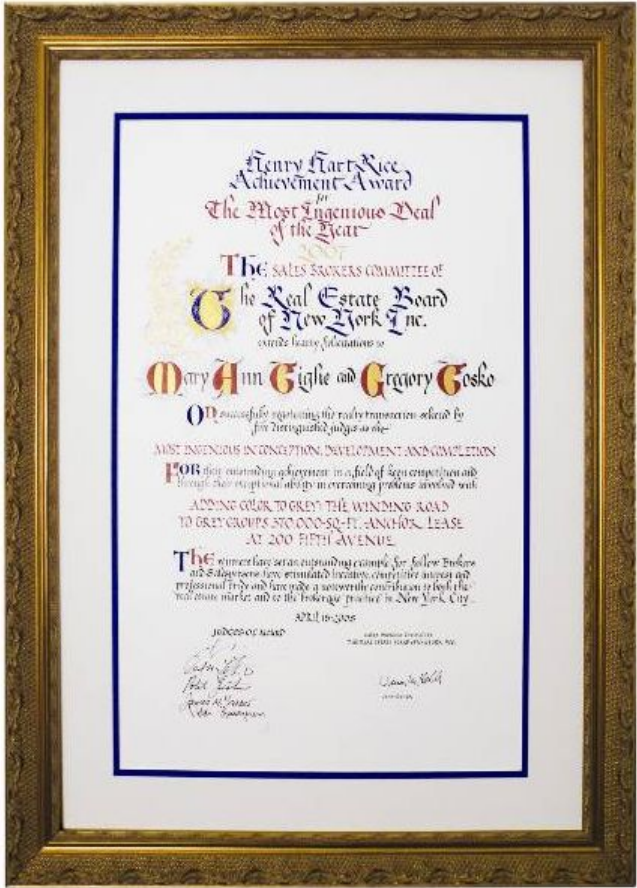 Henry Hart Rice
Achievement Award
for
The Most Ingenious Deal
of the Year
2007
THE SALES BROKERS COMMITTEE OF
The Real Estate Board
of New York Inc.
extends hearty felicitations to
Mary Ann Tighe and Gregory Tosko
ON successfully negotiating the realty transaction selected by
five distinguished judges as the
MOST INGENIOUS IN CONCEPTION, DEVELOPMENT AND COMPLETION
FOR their outstanding achievement in a field of keen competition and
through their exceptional ability in overcoming problems involved with
ADDING COLOR TO GREY: THE WINDING ROAD
TO GREY GROUP'S 370,000-SQ-FT. ANCHOR LEASE
AT 200 FIFTH AVENUE
THE winners have set an outstanding example for fellow Brokers
and Salespersons have stimulated incentive, competitive interest and
professional pride and have made a noteworthy contribution to both the
real estate market and to the brokerage practice in New York City
APRIL 2008
JUDGES OF AWARD
SALES BROKERS COMMITTEE
THE REAL ESTATE BOARD OF NEW YORK, INC.